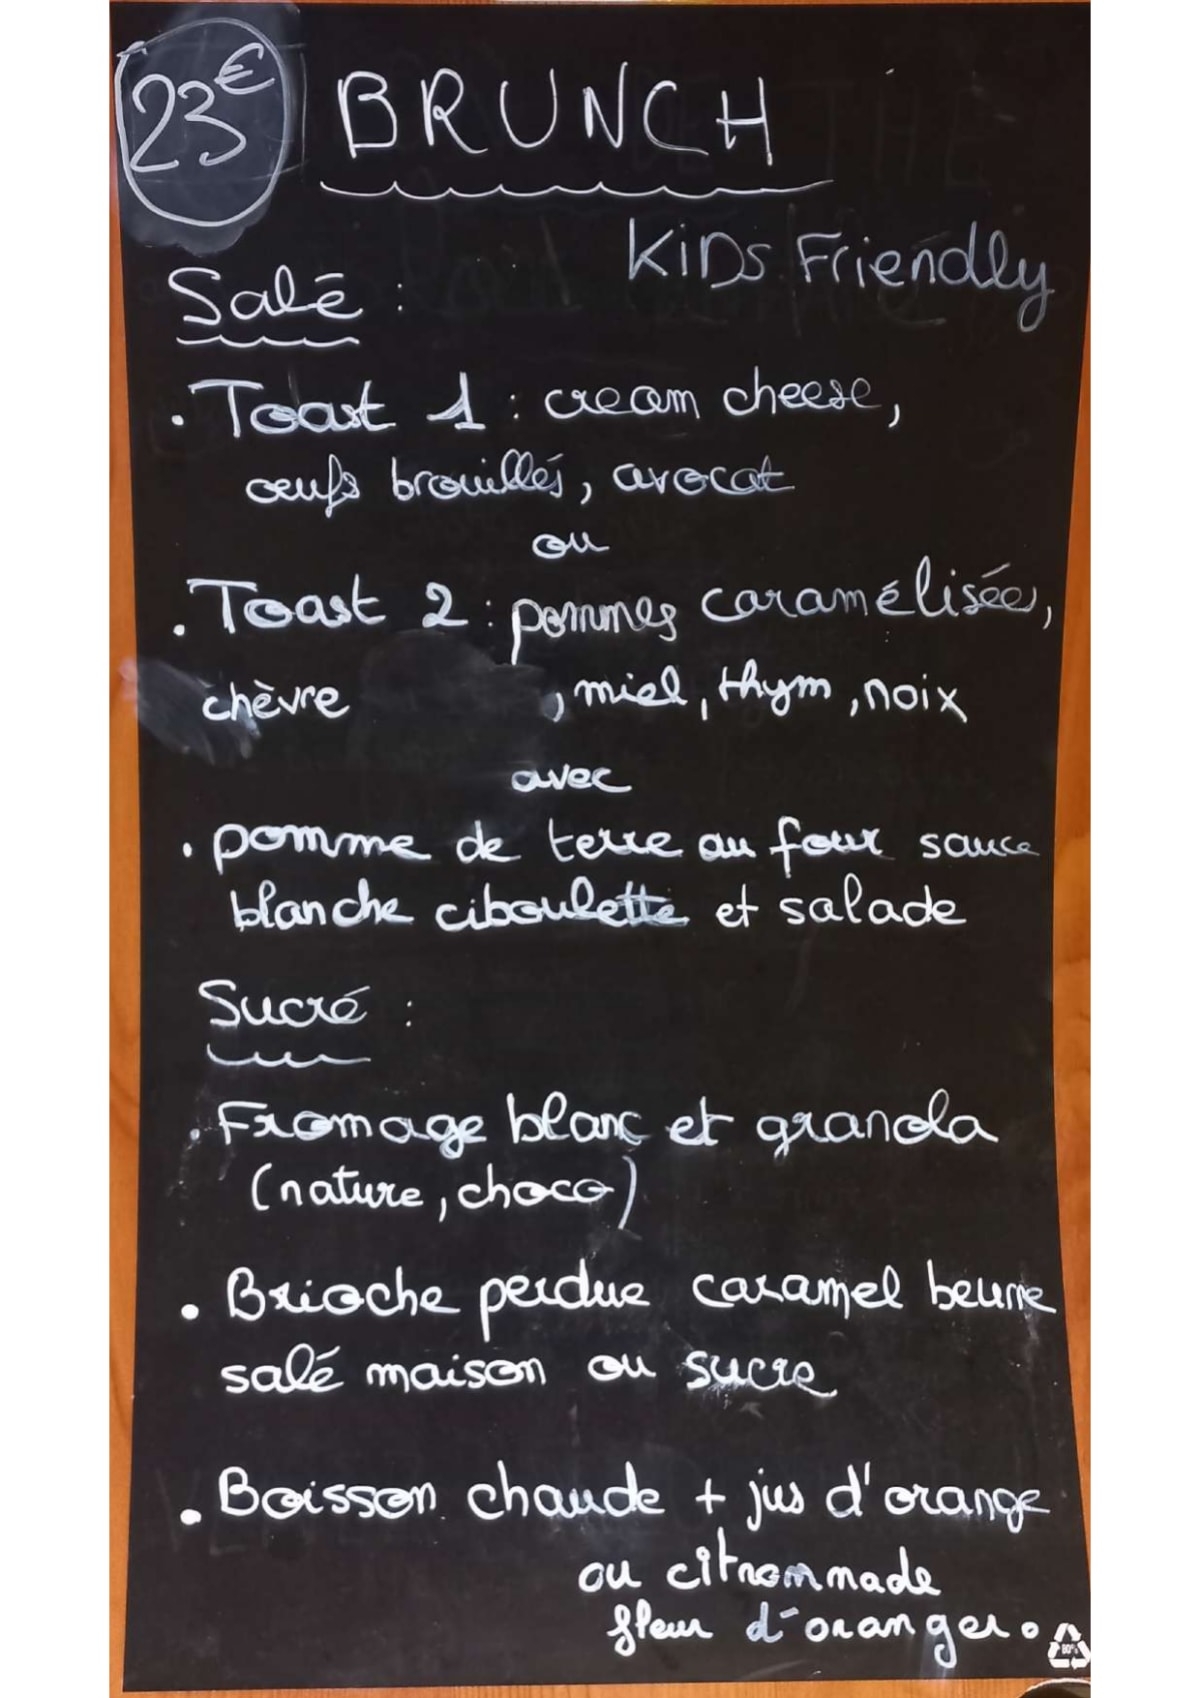 23€ BRUNCH
KiDs Friendly
Salé :
. Toast 1 : cream cheese,
œufs brouillés, avocat
ou
. Toast 2 : pommes caramélisées,
chèvre , miel, thym, noix
avec
. pomme de terre au four sauce
blanche ciboulette et salade
Sucré :
. Fromage blanc et granola
(nature, choco)
. Brioche perdue caramel beurre
salé maison ou sucre
. Boisson chaude + jus d'orange
ou citronmade
fleur d'oranger.